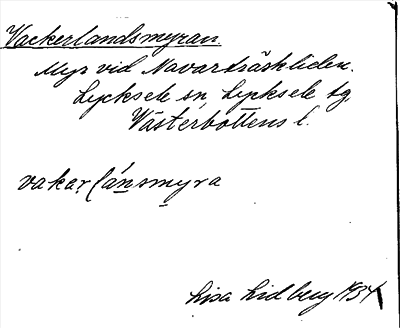 Vackerlandsmyran.
Myr vid Navarträskliden.
Lycksele sn, Lycksele tg,
Västerbottens l.
vakaṛlánsmyra
Lisa Lidberg 1934